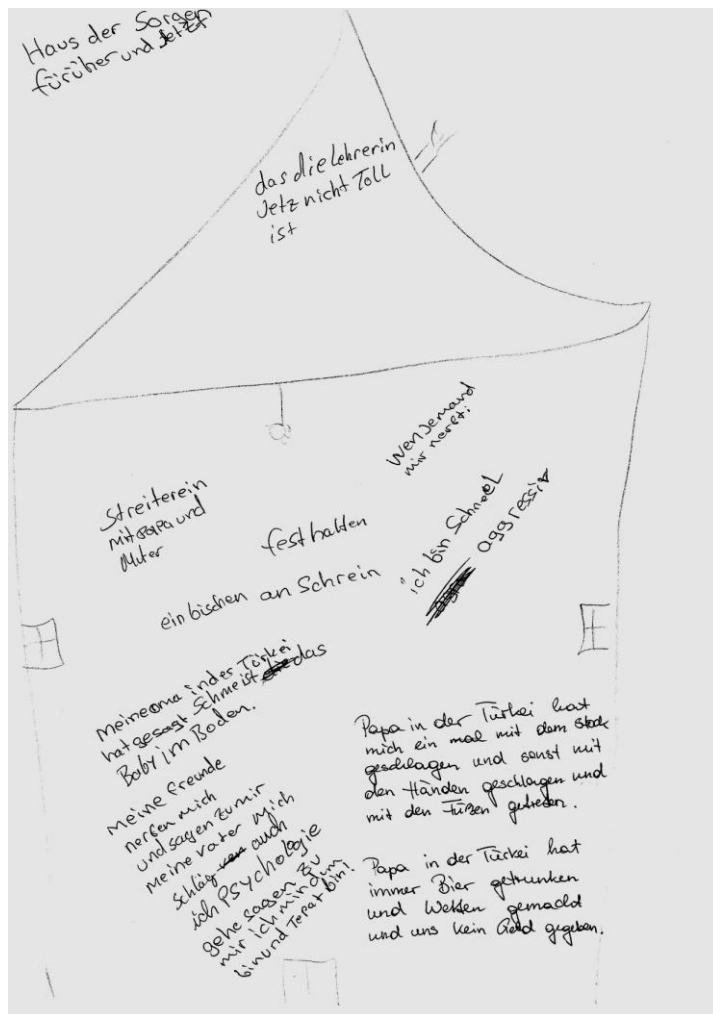 Haus der Sorgen
fürüher und Jetzt
das die Lehrerin
Jetz nicht Toll
ist
Wen Jemand
mir nerft:
Streiterein
mit Papa und
Muter
fest halten
ich bin Schnell
aggressiv
ein bischen an Schrein
meine oma in der Türkei
hat gesagt Schmeist das
Baby im Boden.
meine freunde
nerfen mich
und sagen zu mir
meine vater mich
Schläg auch
ich PSychologie
gehe sagen zu
mir ich min dum
bin und TePat bin!
Papa in der Türkei hat
mich ein mal mit dem Stock
geschlagen und sonst mit
den Händen geschlagen und
mit den Füßen getreten.
Papa in der Türkei hat
immer Bier getrunken
und Wetten gemacht
und uns kein Geld gegeben.